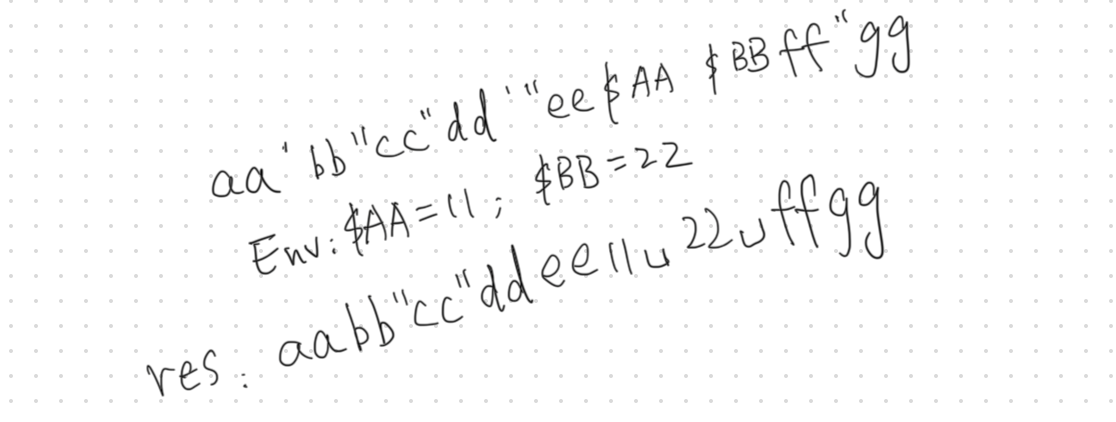 aa'bb"cc"dd'"ee$AA $BBff"gg
Env: $AA=11; $BB=22
res: aabb"cc"ddee11␣22␣ffgg